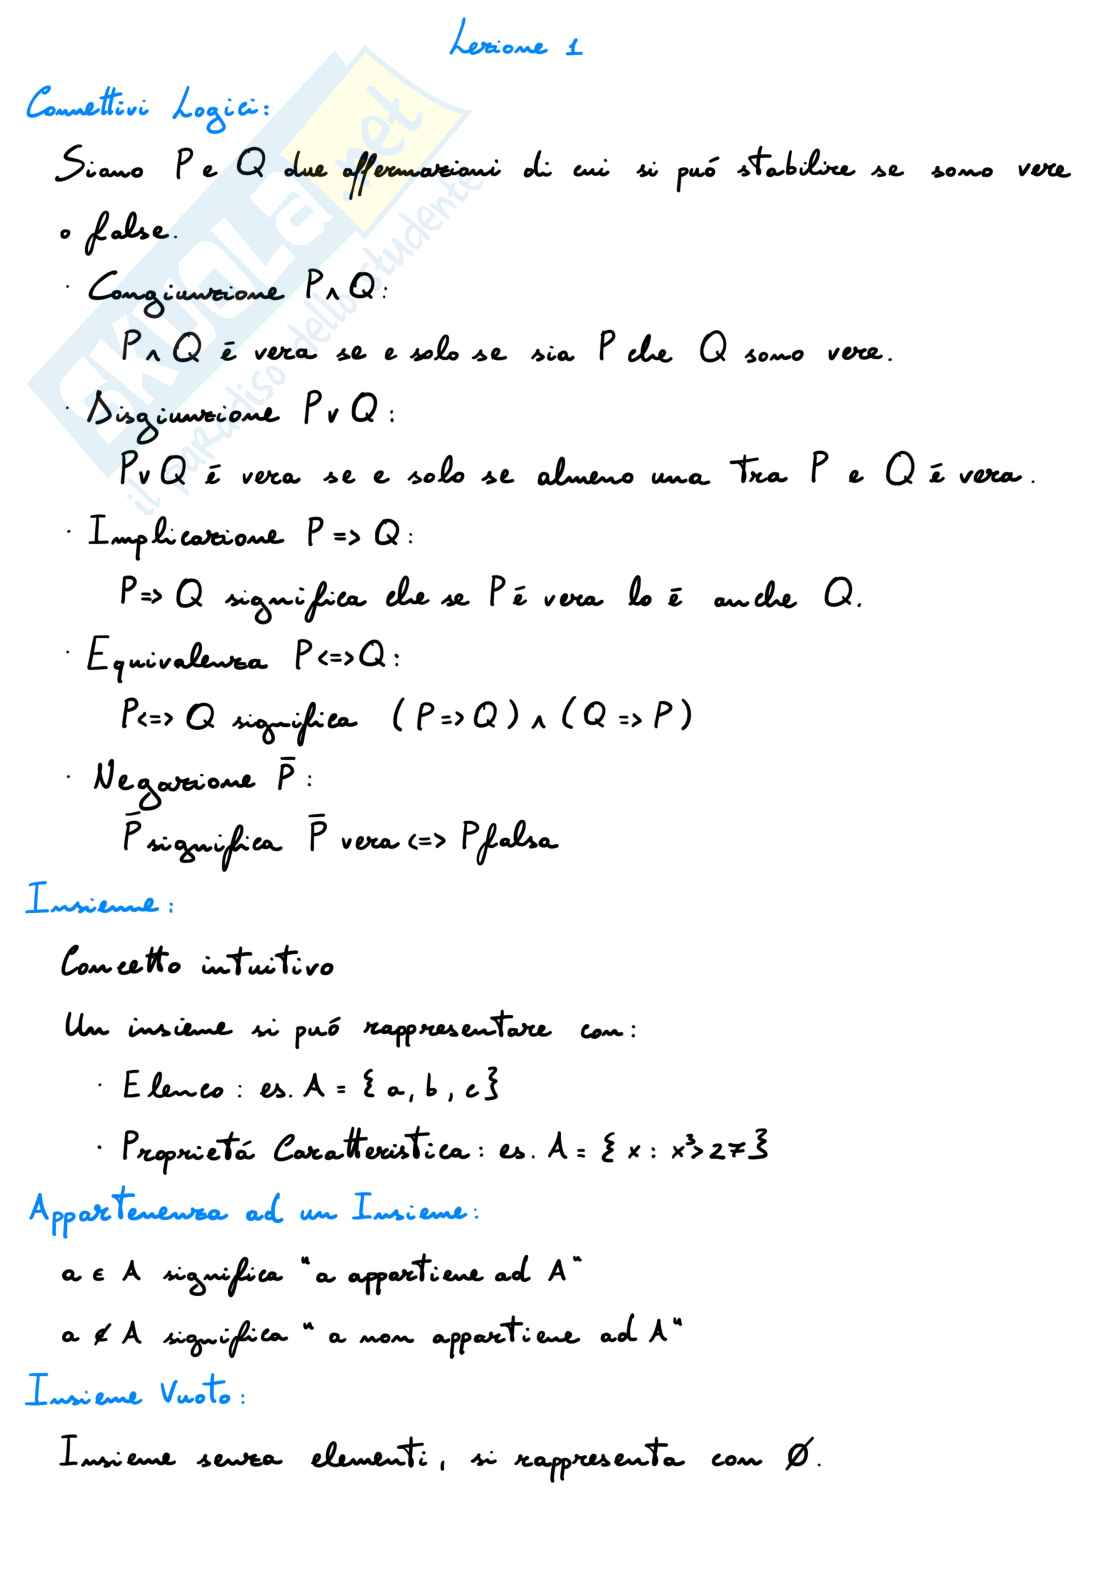 Lezione 1
Connettivi Logici:
Siano P e Q due affermazioni di cui si può stabilire se sono vere
o false.
· Congiunzione P ∧ Q:
P ∧ Q è vera se e solo se sia P che Q sono vere.
· Disgiunzione P ∨ Q:
P ∨ Q è vera se e solo se almeno una tra P e Q è vera.
· Implicazione P => Q:
P => Q significa che se P è vera lo è anche Q.
· Equivalenza P <=> Q:
P <=> Q significa (P => Q) ∧ (Q => P)
· Negazione P̄:
P̄ significa P̄ vera <=> P falsa
Insieme:
Concetto intuitivo
Un insieme si può rappresentare con:
· Elenco: es. A = {a, b, c}
· Proprietá Caratteristica: es. A = {x : x³>27}
Appartenenza ad un Insieme:
a ∈ A significa "a appartiene ad A"
a ∉ A significa "a non appartiene ad A"
Insieme Vuoto:
Insieme senza elementi, si rappresenta con Ø.
SKUOLA.net
il paradiso dello studente